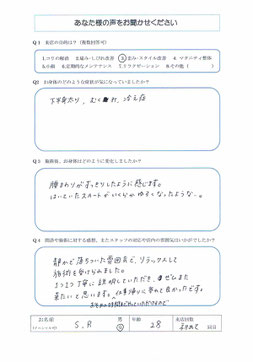 あなた様の声をお聞かせください
Q.1 来店の目的は?(複数回答可)
1.コリの緩和 2.痛み・しびれ改善 ③歪み・スタイル改善 4.マタニティ整体
5.小顔 6.定期的なメンテナンス 7.リラクゼーション 8.その他(　)
Q2 お身体のどのような症状が気になっていましたか?
下半身太り、むくみ、冷え症
Q.3 施術後、お身体はどのように変化しましたか?
腰まわりがすっきりしたように感じます。
はいていたスカートがいくらかゆるくなったような…。
Q.4 問診や施術に対する感想、またスタッフの対応や店内の雰囲気はいかがでしたか?
静かで落ちついた雰囲気で、リラックスして
施術を受けられました。
とても丁寧に説明していただき、ぜひまた
来たいと思います。仕事帰りに寄れて良かったです。
お名前
(イニシャル可)
S.R
男
女
年齢
28
来店回数
初めて
回目